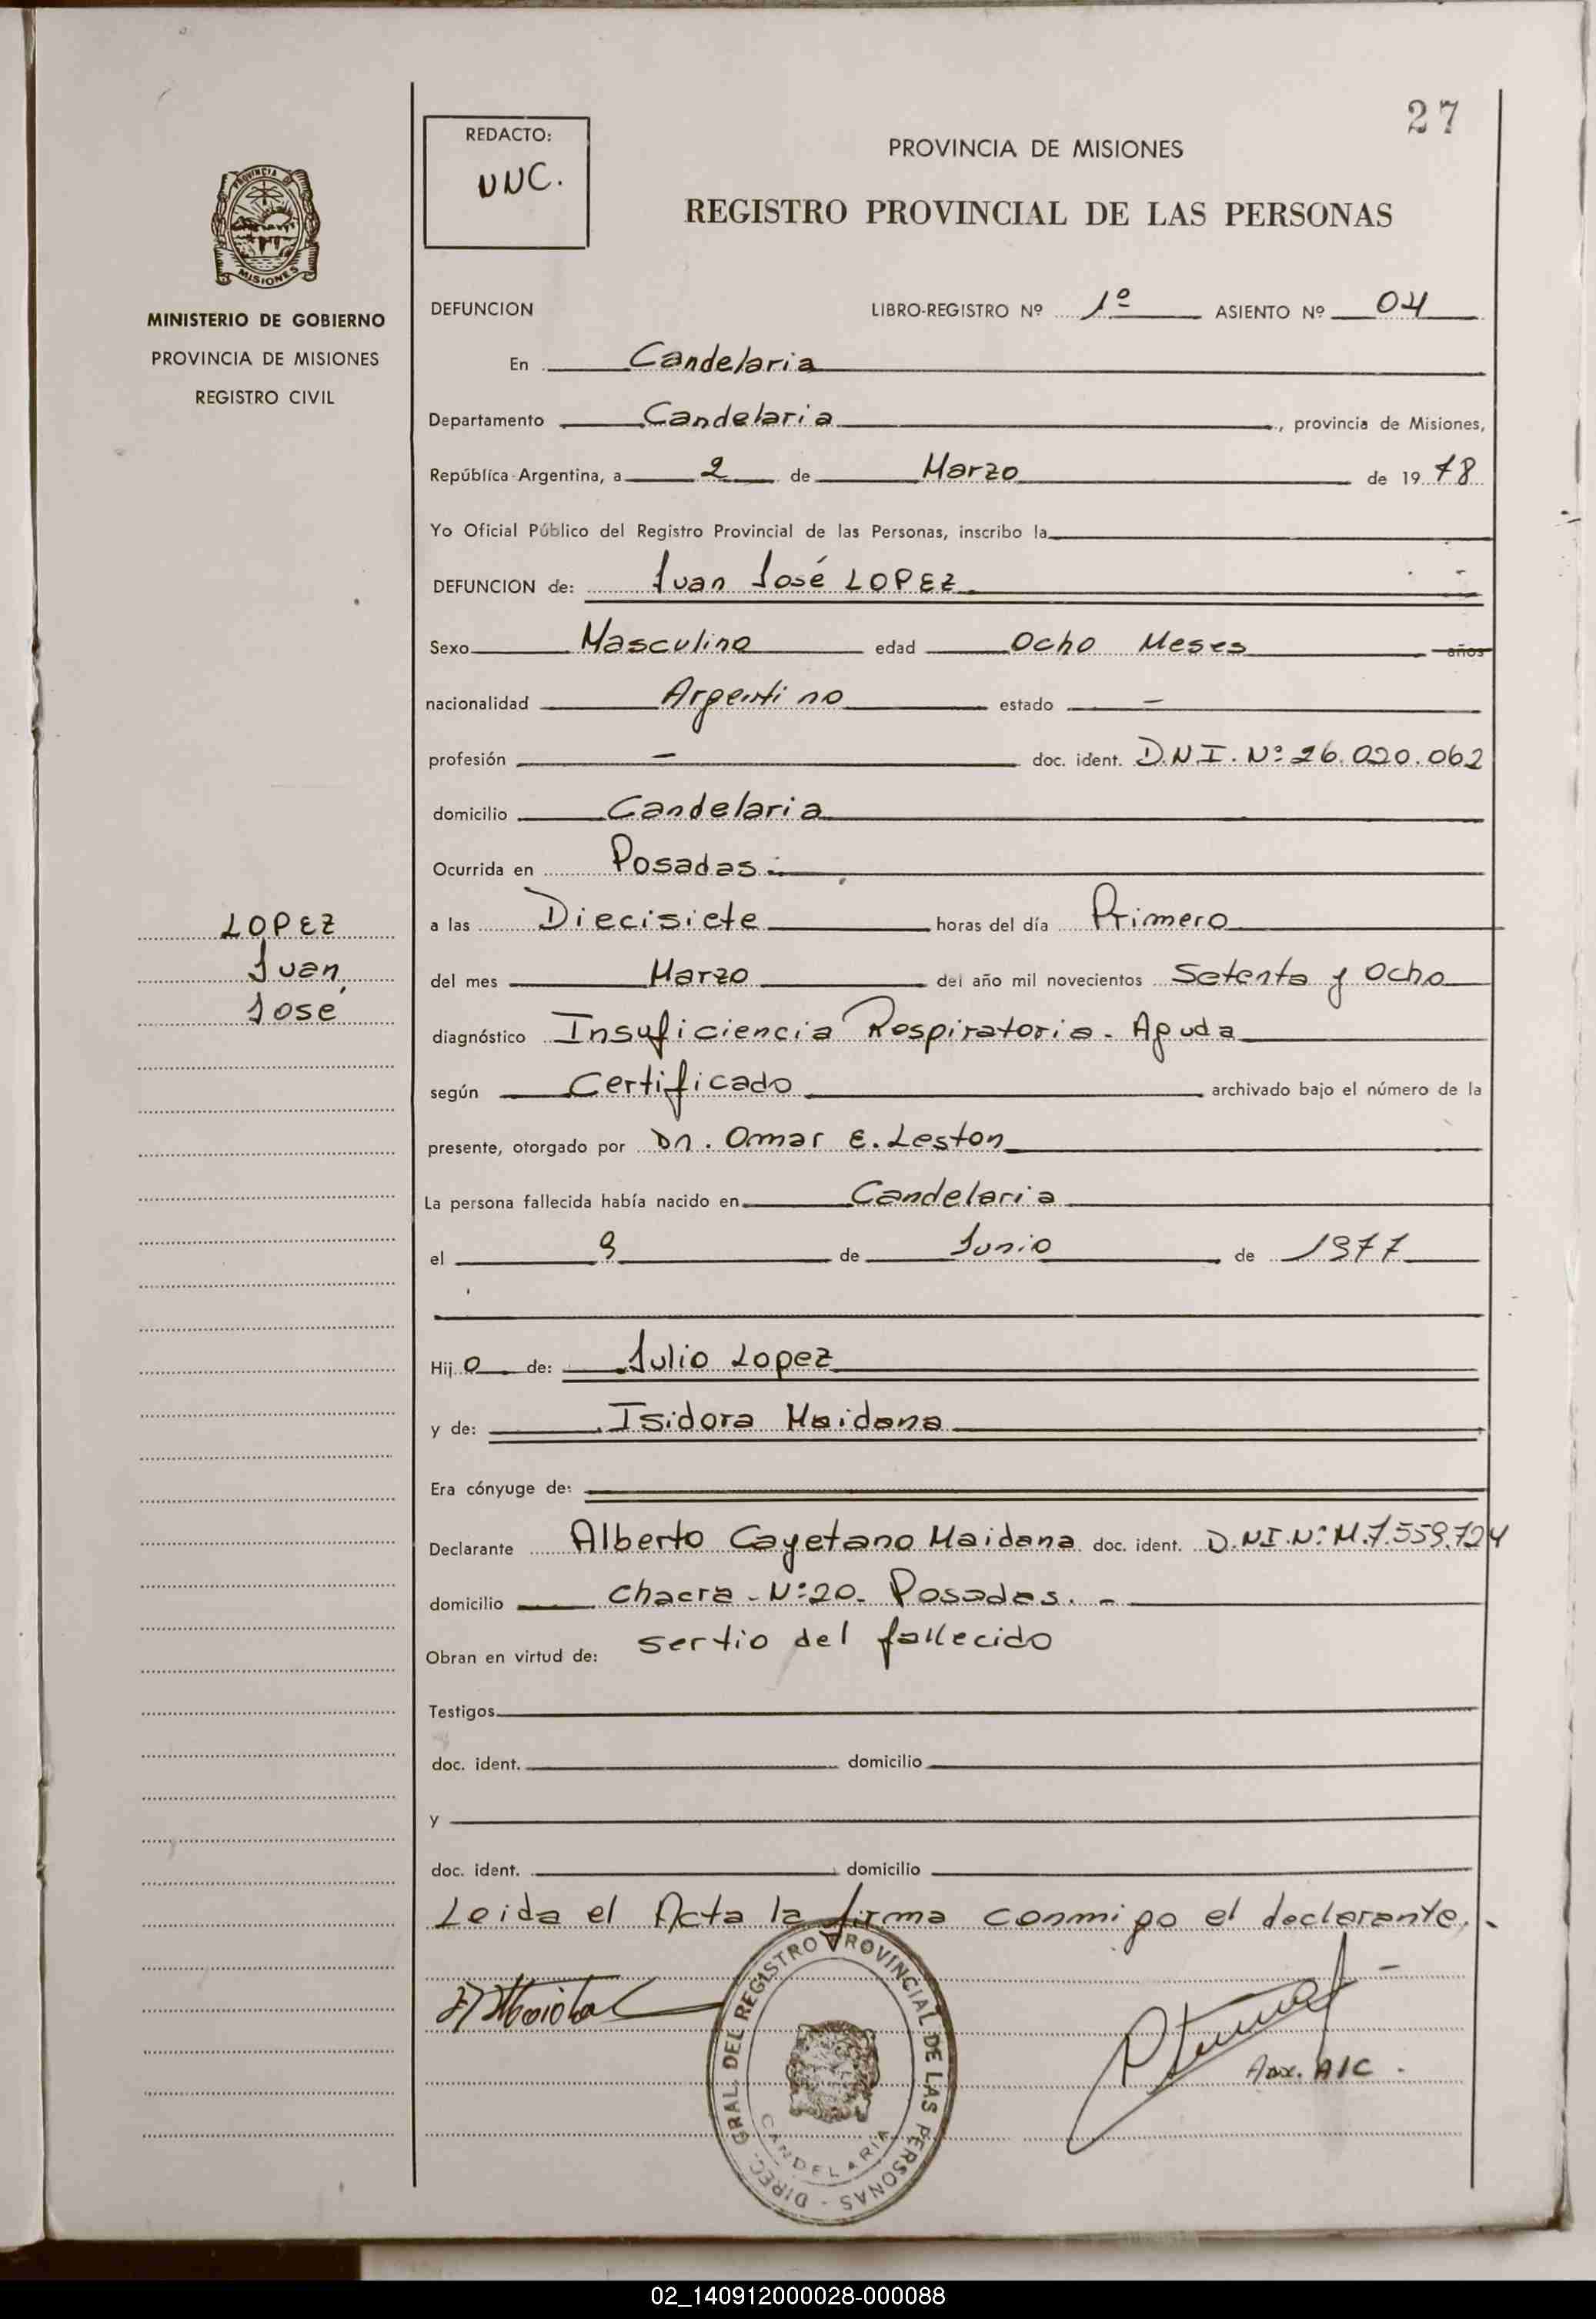 27
REDACTO:
VNC.
PROVINCIA DE MISIONES
REGISTRO PROVINCIAL DE LAS PERSONAS
PROVINCIA DE
MISIONES
MINISTERIO DE GOBIERNO
PROVINCIA DE MISIONES
REGISTRO CIVIL
DEFUNCION LIBRO-REGISTRO Nº 1º ASIENTO Nº 04
En Candelaria
Departamento Candelaria, provincia de Misiones,
República Argentina, a 2 de Marzo de 1978
Yo Oficial Público del Registro Provincial de las Personas, inscribo la
DEFUNCION de: Juan José LOPEZ
Sexo Masculino edad Ocho Meses años
nacionalidad Argentino estado -
profesión - doc. ident. D.N.I. Nº 26.020.062
domicilio Candelaria
Ocurrida en Posadas
a las Diecisiete horas del día Primero
del mes Marzo del año mil novecientos Setenta y Ocho
diagnóstico Insuficiencia Respiratoria - Aguda
según Certificado archivado bajo el número de la
presente, otorgado por Dn. Omar E. Leston
La persona fallecida había nacido en Candelaria
el 9 de Junio de 1977
Hijo de: Julio Lopez
y de: Isidora Maidana
Era cónyuge de:
Declarante Alberto Cayetano Maidana doc. ident. D.NI.Nº M.7.559.724
domicilio Chacra - Nº 20 - Posadas. -
Obran en virtud de: ser tio del fallecido
Testigos
doc. ident. domicilio
y
doc. ident. domicilio
Leida el Acta la firma conmigo el declarante.
LOPEZ
Juan
José
DIREC. GRAL. DEL REGISTRO PROVINCIAL DE LAS PERSONAS -
CANDELARIA
Aux. A/C.
02_140912000028-000088